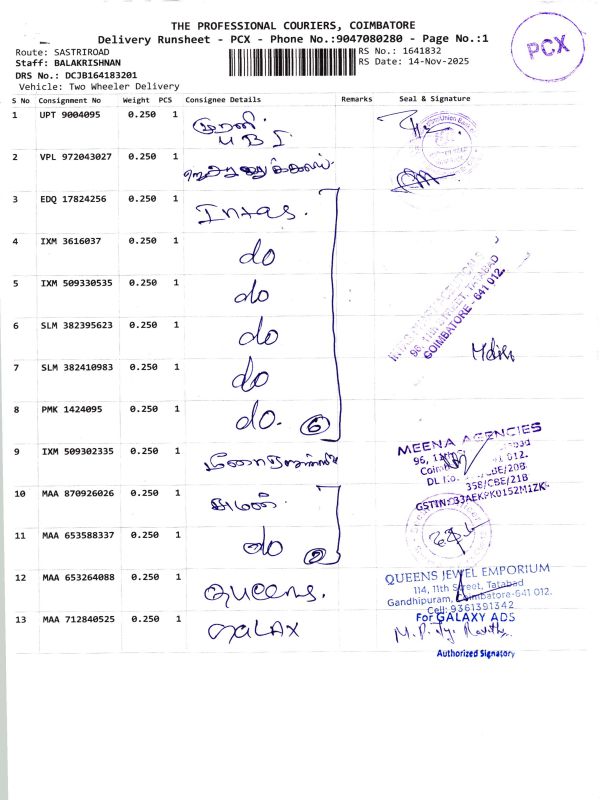 THE PROFESSIONAL COURIERS, COIMBATORE
Delivery Runsheet - PCX - Phone No.:9047080280 - Page No.:1
Route: SASTRIROAD
RS No.: 1641832
Staff: BALAKRISHNAN
RS Date: 14-Nov-2025
DRS No.: DCJB164183201
Vehicle: Two Wheeler Delivery
PCX
S No Consignment No Weight PCS Consignee Details Remarks Seal & Signature
1 UPT 9004095 0.250 1 முரளி
UBI
2 VPL 972043027 0.250 1
3 EDQ 17824256 0.250 1 Intas.
4 IXM 3616037 0.250 1 do
5 IXM 509330535 0.250 1 do
6 SLM 382395623 0.250 1 do
7 SLM 382410983 0.250 1 do
8 PMK 1424095 0.250 1 do. 6
96, 11TH STREET, TATABAD
COIMBATORE - 641 012.
9 IXM 509302335 0.250 1
MEENA AGENCIES
96,
012.
DL No. CBE/20B
358/CBE/21B
10 MAA 870926026 0.250 1
11 MAA 653588337 0.250 1 do 2
12 MAA 653264088 0.250 1 Queens.
QUEENS JEWEL EMPORIUM
114, 11th Street, Tatabad
Gandhipuram, Coimbatore-641 012.
Cell: 9361391342
13 MAA 712840525 0.250 1 GALAX
For GALAXY ADS
Authorized Signatory